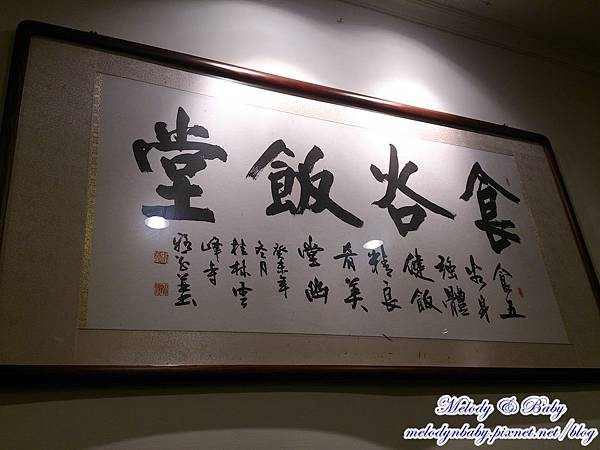 食谷飯堂
食五
谷身
強體
健飯
精良
肴美
堂幽
癸未年
冬月
桂林雲
峰寺
Melody & Baby
melodynbaby.pixnet.net/blog